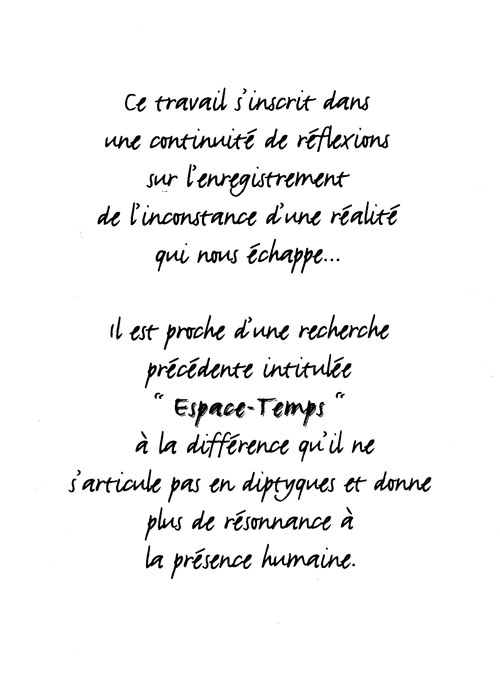 Ce travail s'inscrit dans
une continuité de réflexions
sur l'enregistrement
de l'inconstance d'une réalité
qui nous échappe...
Il est proche d'une recherche
précédente intitulée
“ Espace-Temps “
à la différence qu'il ne
s'articule pas en diptyques et donne
plus de résonnance à
la présence humaine.